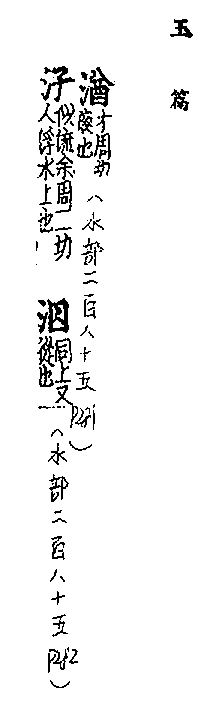 玉篇
湭 才周切
廢也 （水部二百八十五 p281）
汓 似流余周二切
人浮水上也
泅 同上又
從也 （水部二百八十五 p282）